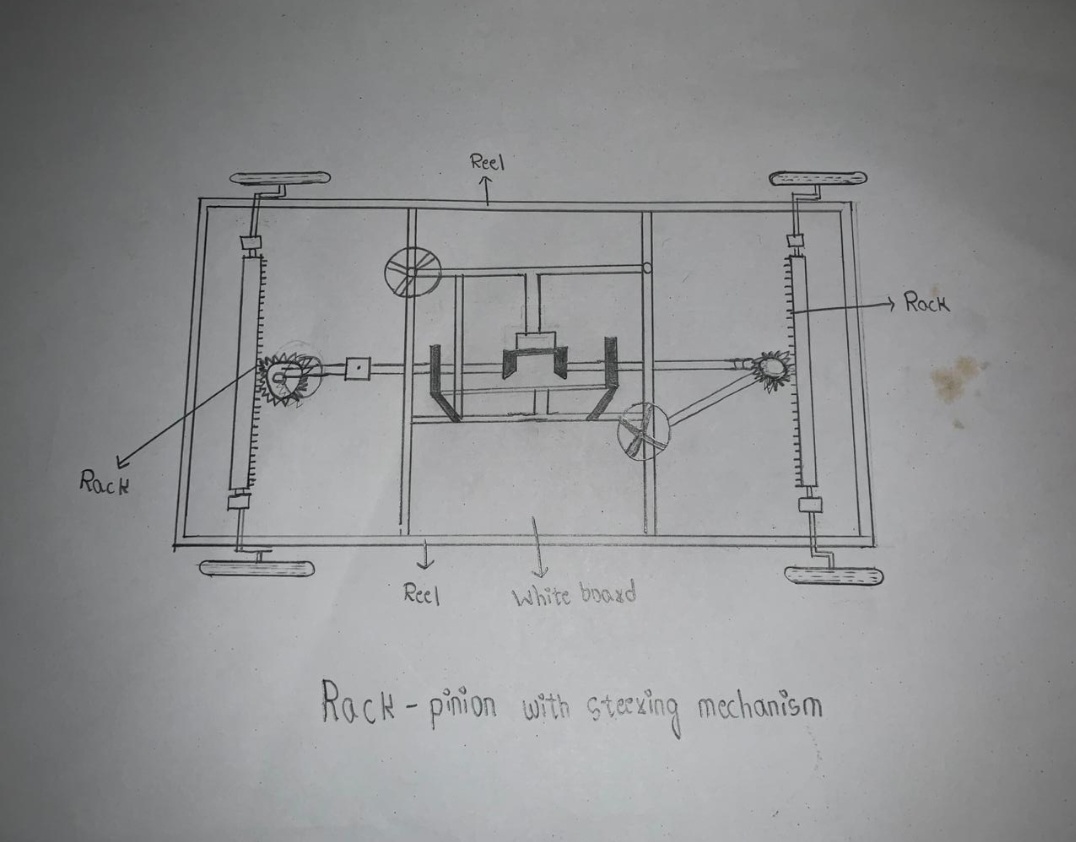 Reel
Rack
Rack
Reel
White board
Rack-pinion with steering mechanism